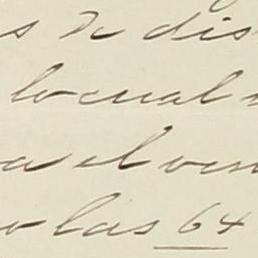 s de dis
lo cual
a el ven
o las 64